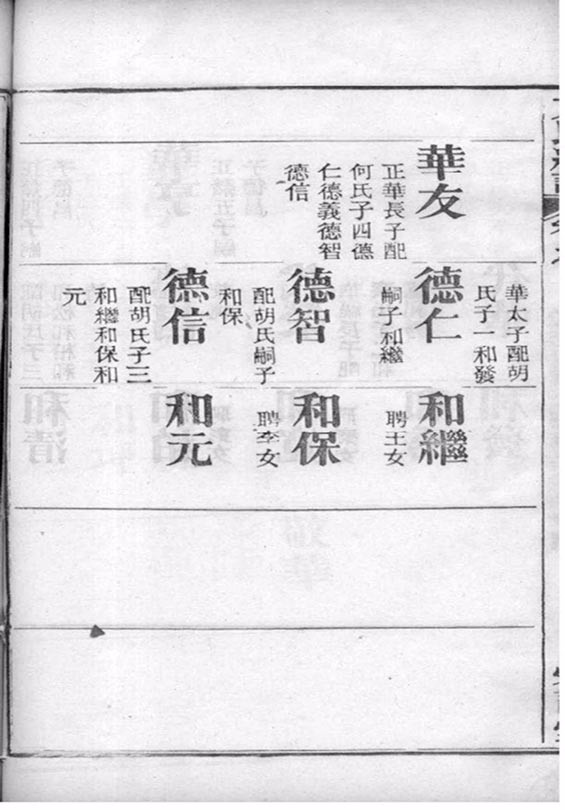 華友
正華長子配
何氏子四德
仁德義德智
德信
華太子配胡
氏子一和發
德仁
嗣子和繼
德智
配胡氏嗣子
和保
德信
配胡氏子三
和繼和保和
元
和繼
聘王女
和保
聘李女
和元